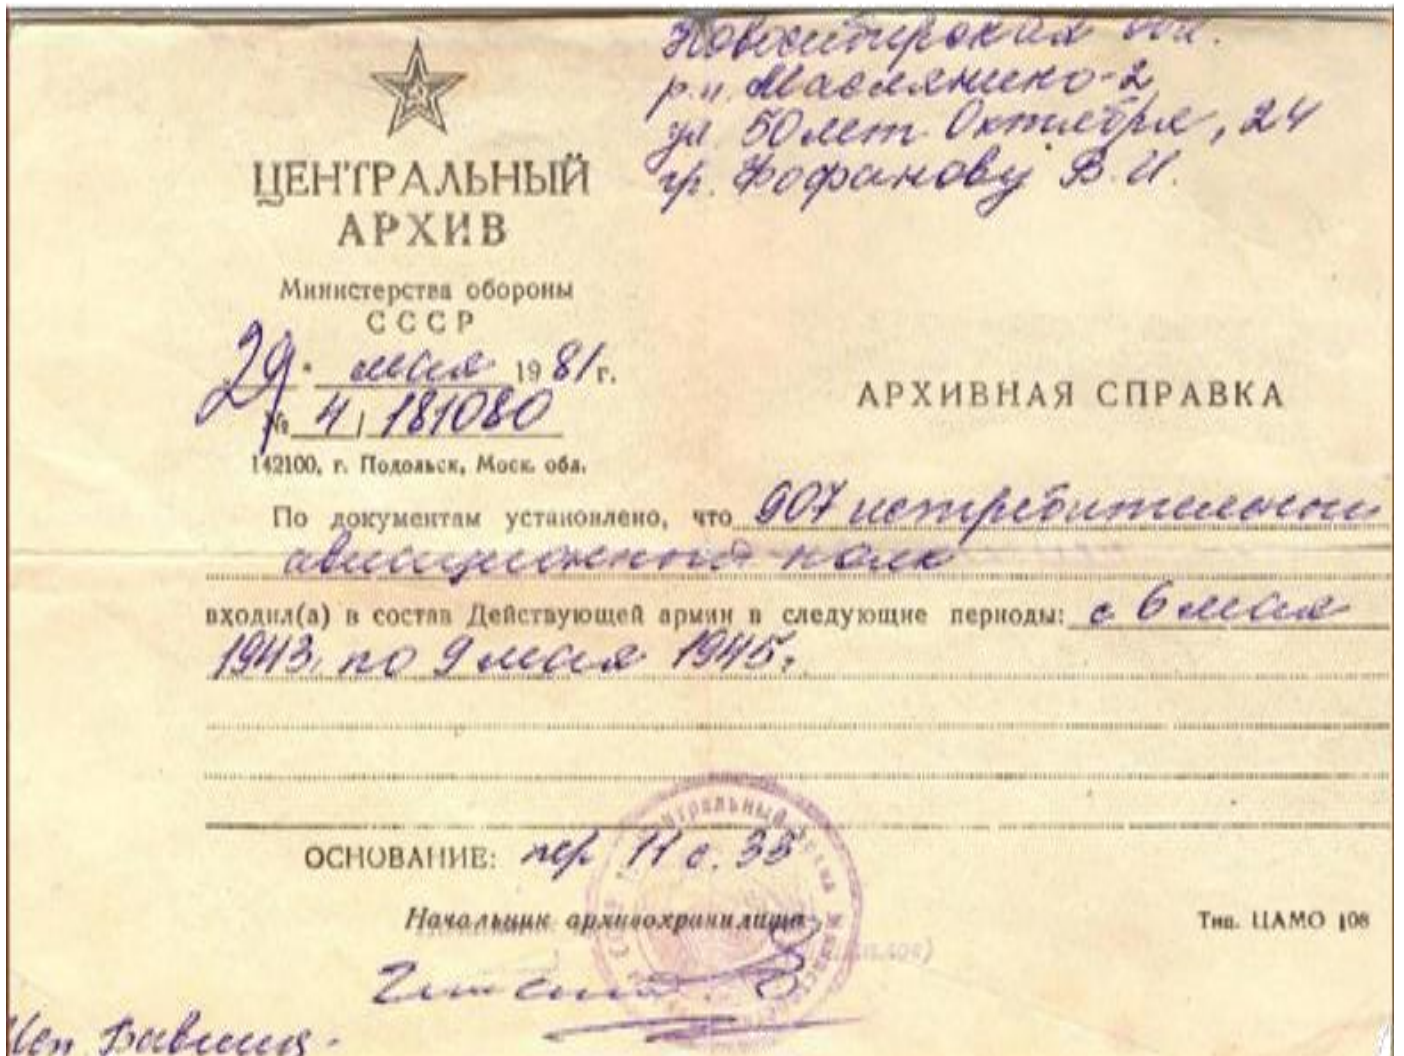 Новосибирская обл.
р.п. Маслянино-2
ул. 50 лет Октября, 24
гр. Фофанову В.И.
ЦЕНТРАЛЬНЫЙ
АРХИВ
Министерства обороны
СССР
29 мая 1981 г.
№ 4 / 181080
142100, г. Подольск, Моск. обл.
АРХИВНАЯ СПРАВКА
По документам установлено, что 907 истребительный
авиационный полк
входил(а) в состав Действующей армии в следующие периоды: с 6 мая
1943 по 9 мая 1945.
ОСНОВАНИЕ: пер 11 с. 33
Начальник архивохранилища
Тип. ЦАМО 108
Исп.